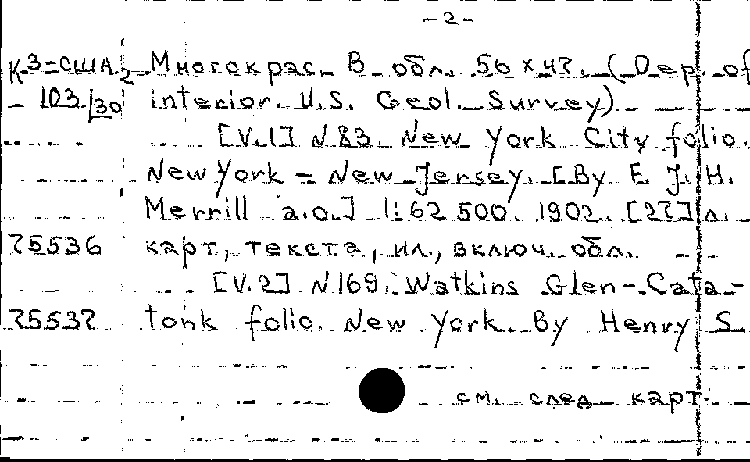 -2-
К3=США2 Многокрас. В обл. 56 × 47. (Dep. of
- 103/30 interior. U.S. Geol. Survey)
[V.1] N 83. New York City folio.
New York - New Jersey. [By F. J. H.
Merrill a.o.] 1:62 500. 1902. [27] л.
75536 карт, текста, ил., включ. обл.
[V.2] N 169. Watkins Glen-Cata-
75537 tonk folio. New York. By Henry S.
см. след карт.